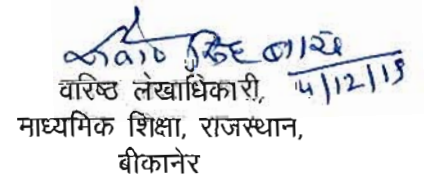 4/12/19
वरिष्ठ लेखाधिकारी,
माध्यमिक शिक्षा, राजस्थान,
बीकानेर